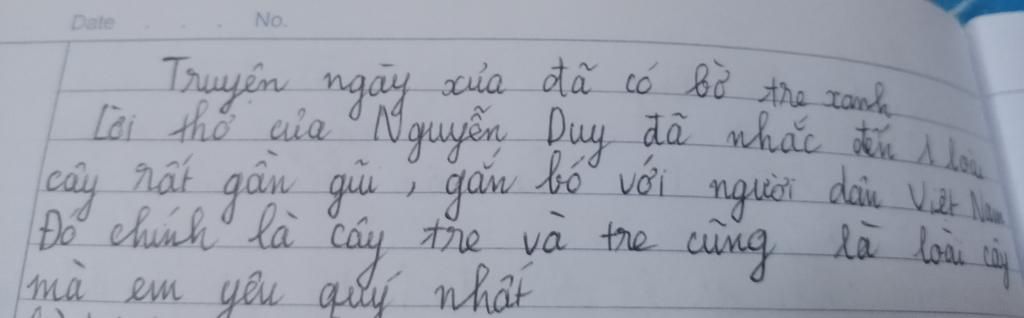 Date . . . No.
Truyện ngày xưa đã có bờ tre xanh
Lời thơ của Nguyễn Duy đã nhắc đến 1 loài
cây rất gần gũi, gắn bó với người dân Việt Nam
Đó chính là cây tre và tre cũng là loài cây
mà em yêu quý nhất